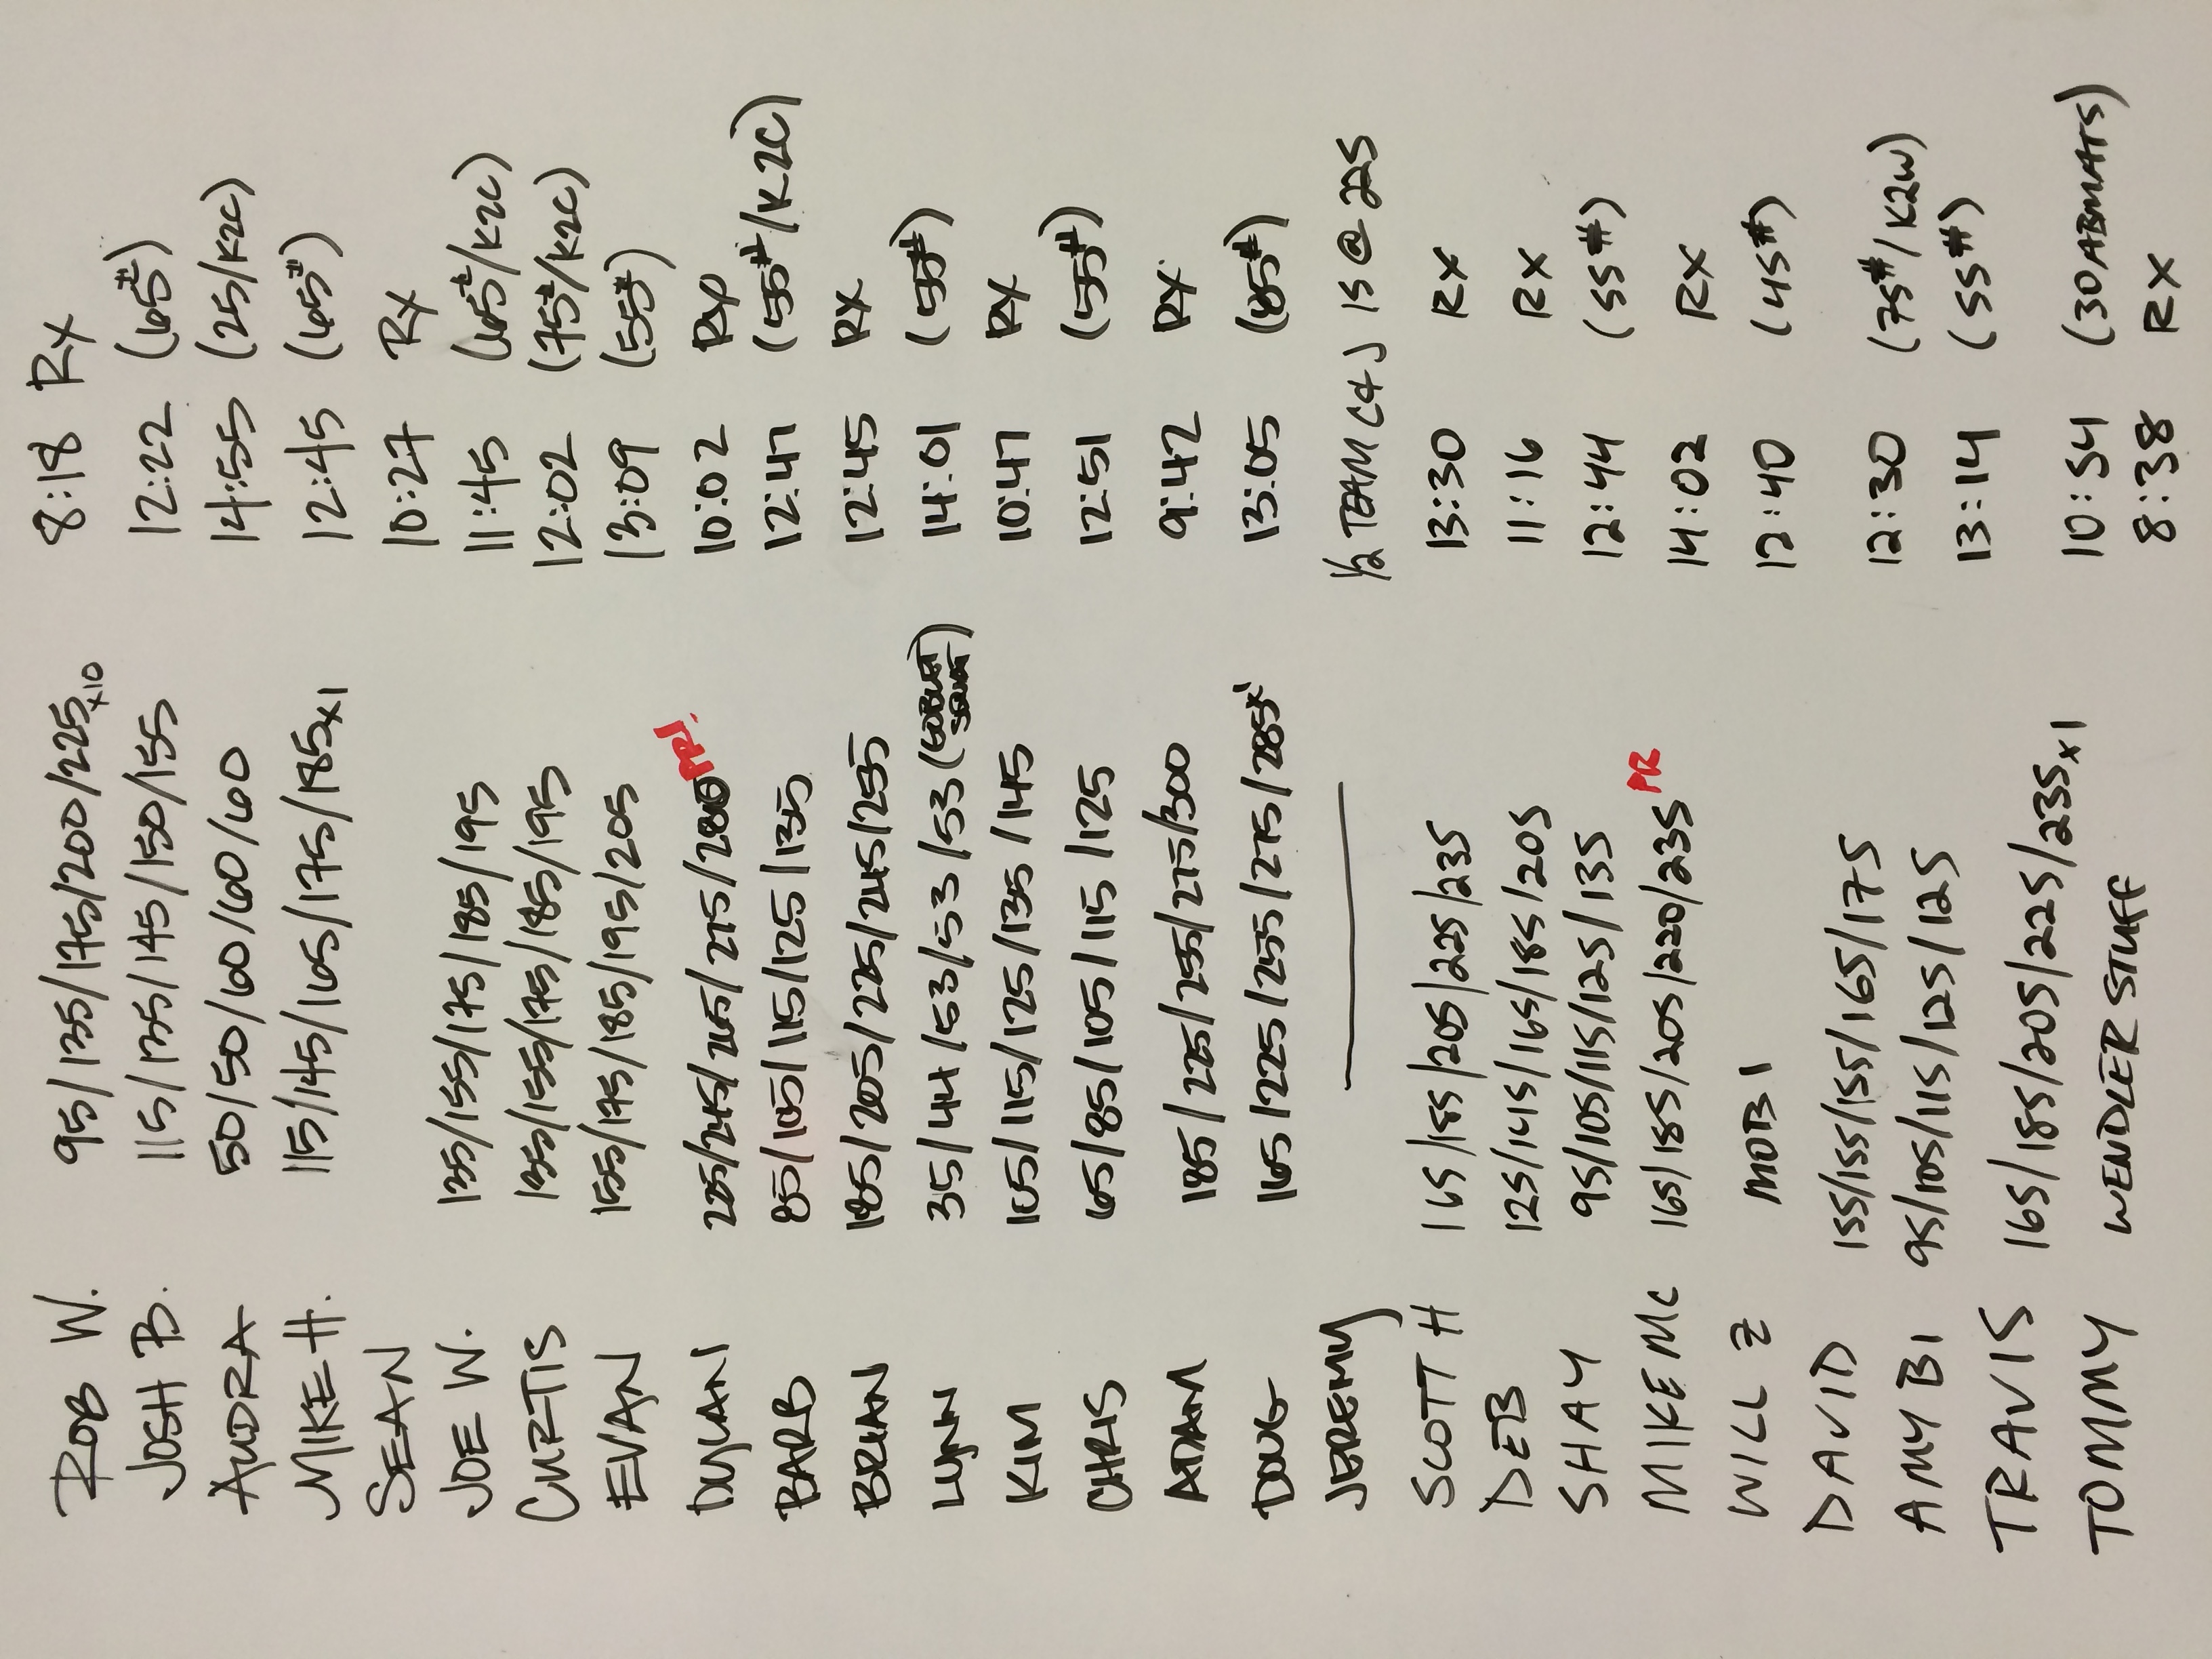 ROB W. 95/135/175/200/225x10 8:18 Rx
JOSH B. 115/135/145/150/155 12:22 (65#)
AUDRA 50/50/60/60/60 14:55 (25/K2C)
MIKE H. 115/145/165/175/185x1 12:45 (65#)
SEAN 10:27 Rx
JOE W. 135/155/175/185/195 11:45 (65#/K2C)
CURTIS 135/155/175/185/195 12:02 (75#/K2C)
EVAN 155/175/185/195/205 13:09 (55#)
225/245/265/275/280 PR! 10:02 Rx
BARB 85/105/115/125/135 12:47 (55#/K2C)
BRIAN 185/205/225/245/255 12:45 Rx
LYNN 35/44/53/53/53 (GOBLET SQUAT) 14:01 (55#)
KIM 105/115/125/135/145 10:47 Rx
CHRIS 65/85/105/115/125 12:51 (55#)
ADAM 185/225/255/275/300 9:42 Rx
DOUG 165/225/255/275/285x1 13:05 (85#)
JEREMY 1/2 TEAM C+J 15 @ 225
SCOTT H 165/185/205/225/235 13:30 Rx
DEB 125/145/165/185/205 11:16 Rx
SHAY 95/105/115/125/135 12:44 (55#)
MIKE MC 165/185/205/220/235 PR 14:02 Rx
WILL Z MOTB 1 12:40 (45#)
DAVID 155/155/155/165/175 12:30 (75#/K2W)
AMY B1 95/105/115/125/125 13:14 (55#)
TRAVIS 165/185/205/225/235x1 10:54 (30 ABMATS)
TOMMY WENDLER STUFF 8:38 RX